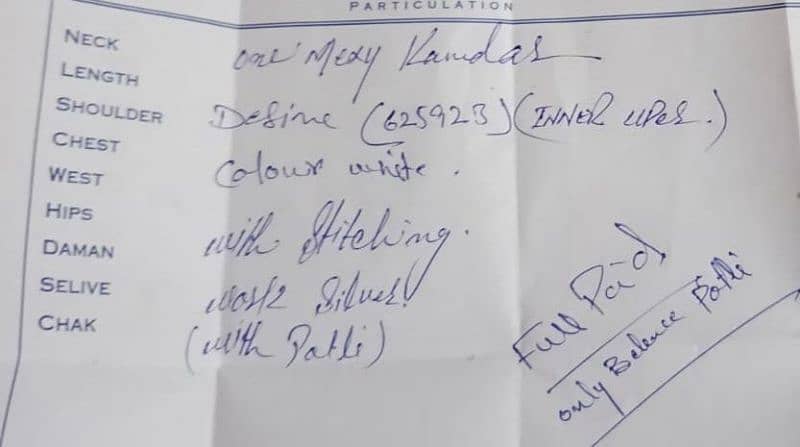 PARTICULATION
NECK
LENGTH
SHOULDER
CHEST
WEST
HIPS
DAMAN
SELIVE
CHAK
one Mexy Kamdar
Desine (625923) (INNER UPER.)
Colour white.
with Stitching.
work Silver
(with Patli)
Full Paid
only Belence Patli